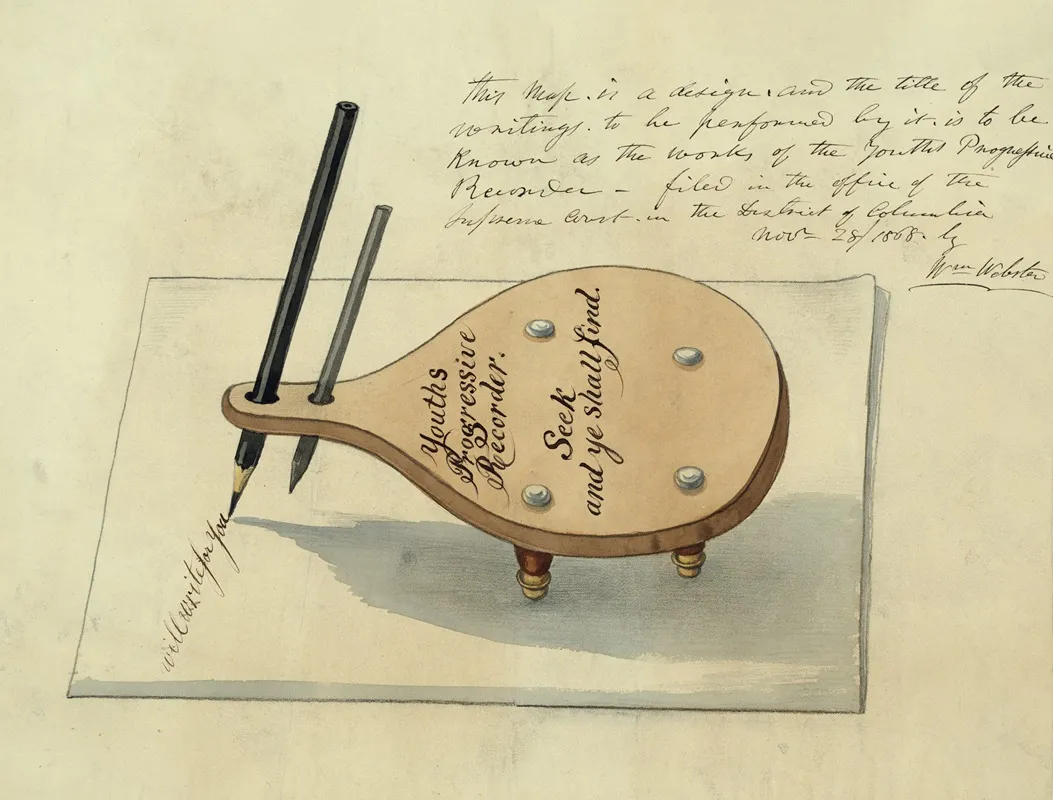 this Map. is a design. and the title of the
writings. to be performed by it. is to be
Known as the works of the Youths Progressive
Recorder - filed in the office of the
Supreme Court. in the District of Columbia
Novr 28/1868. by
Wm Webster
Youths
Progressive
Recorder.
Seek
and ye shall find.
will write for you